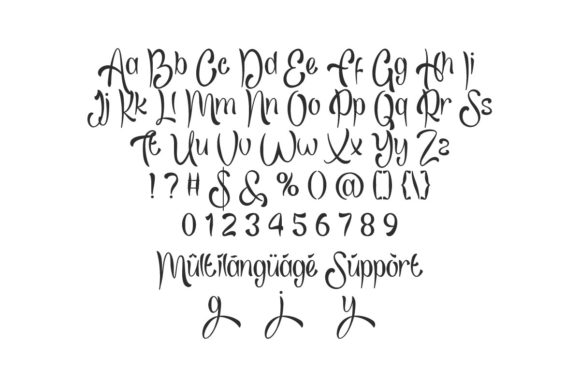 Aa Bb Cc Dd Ee Ff Gg Hh Ii
Jj Kk Ll Mm Nn Oo Pp Qq Rr Ss
Tt Uu Vv Ww Xx Yy Zz
! ? # $ & % () @ [] {\}
0 1 2 3 4 5 6 7 8 9
Mûltílángüágé Súppòrt
g j y